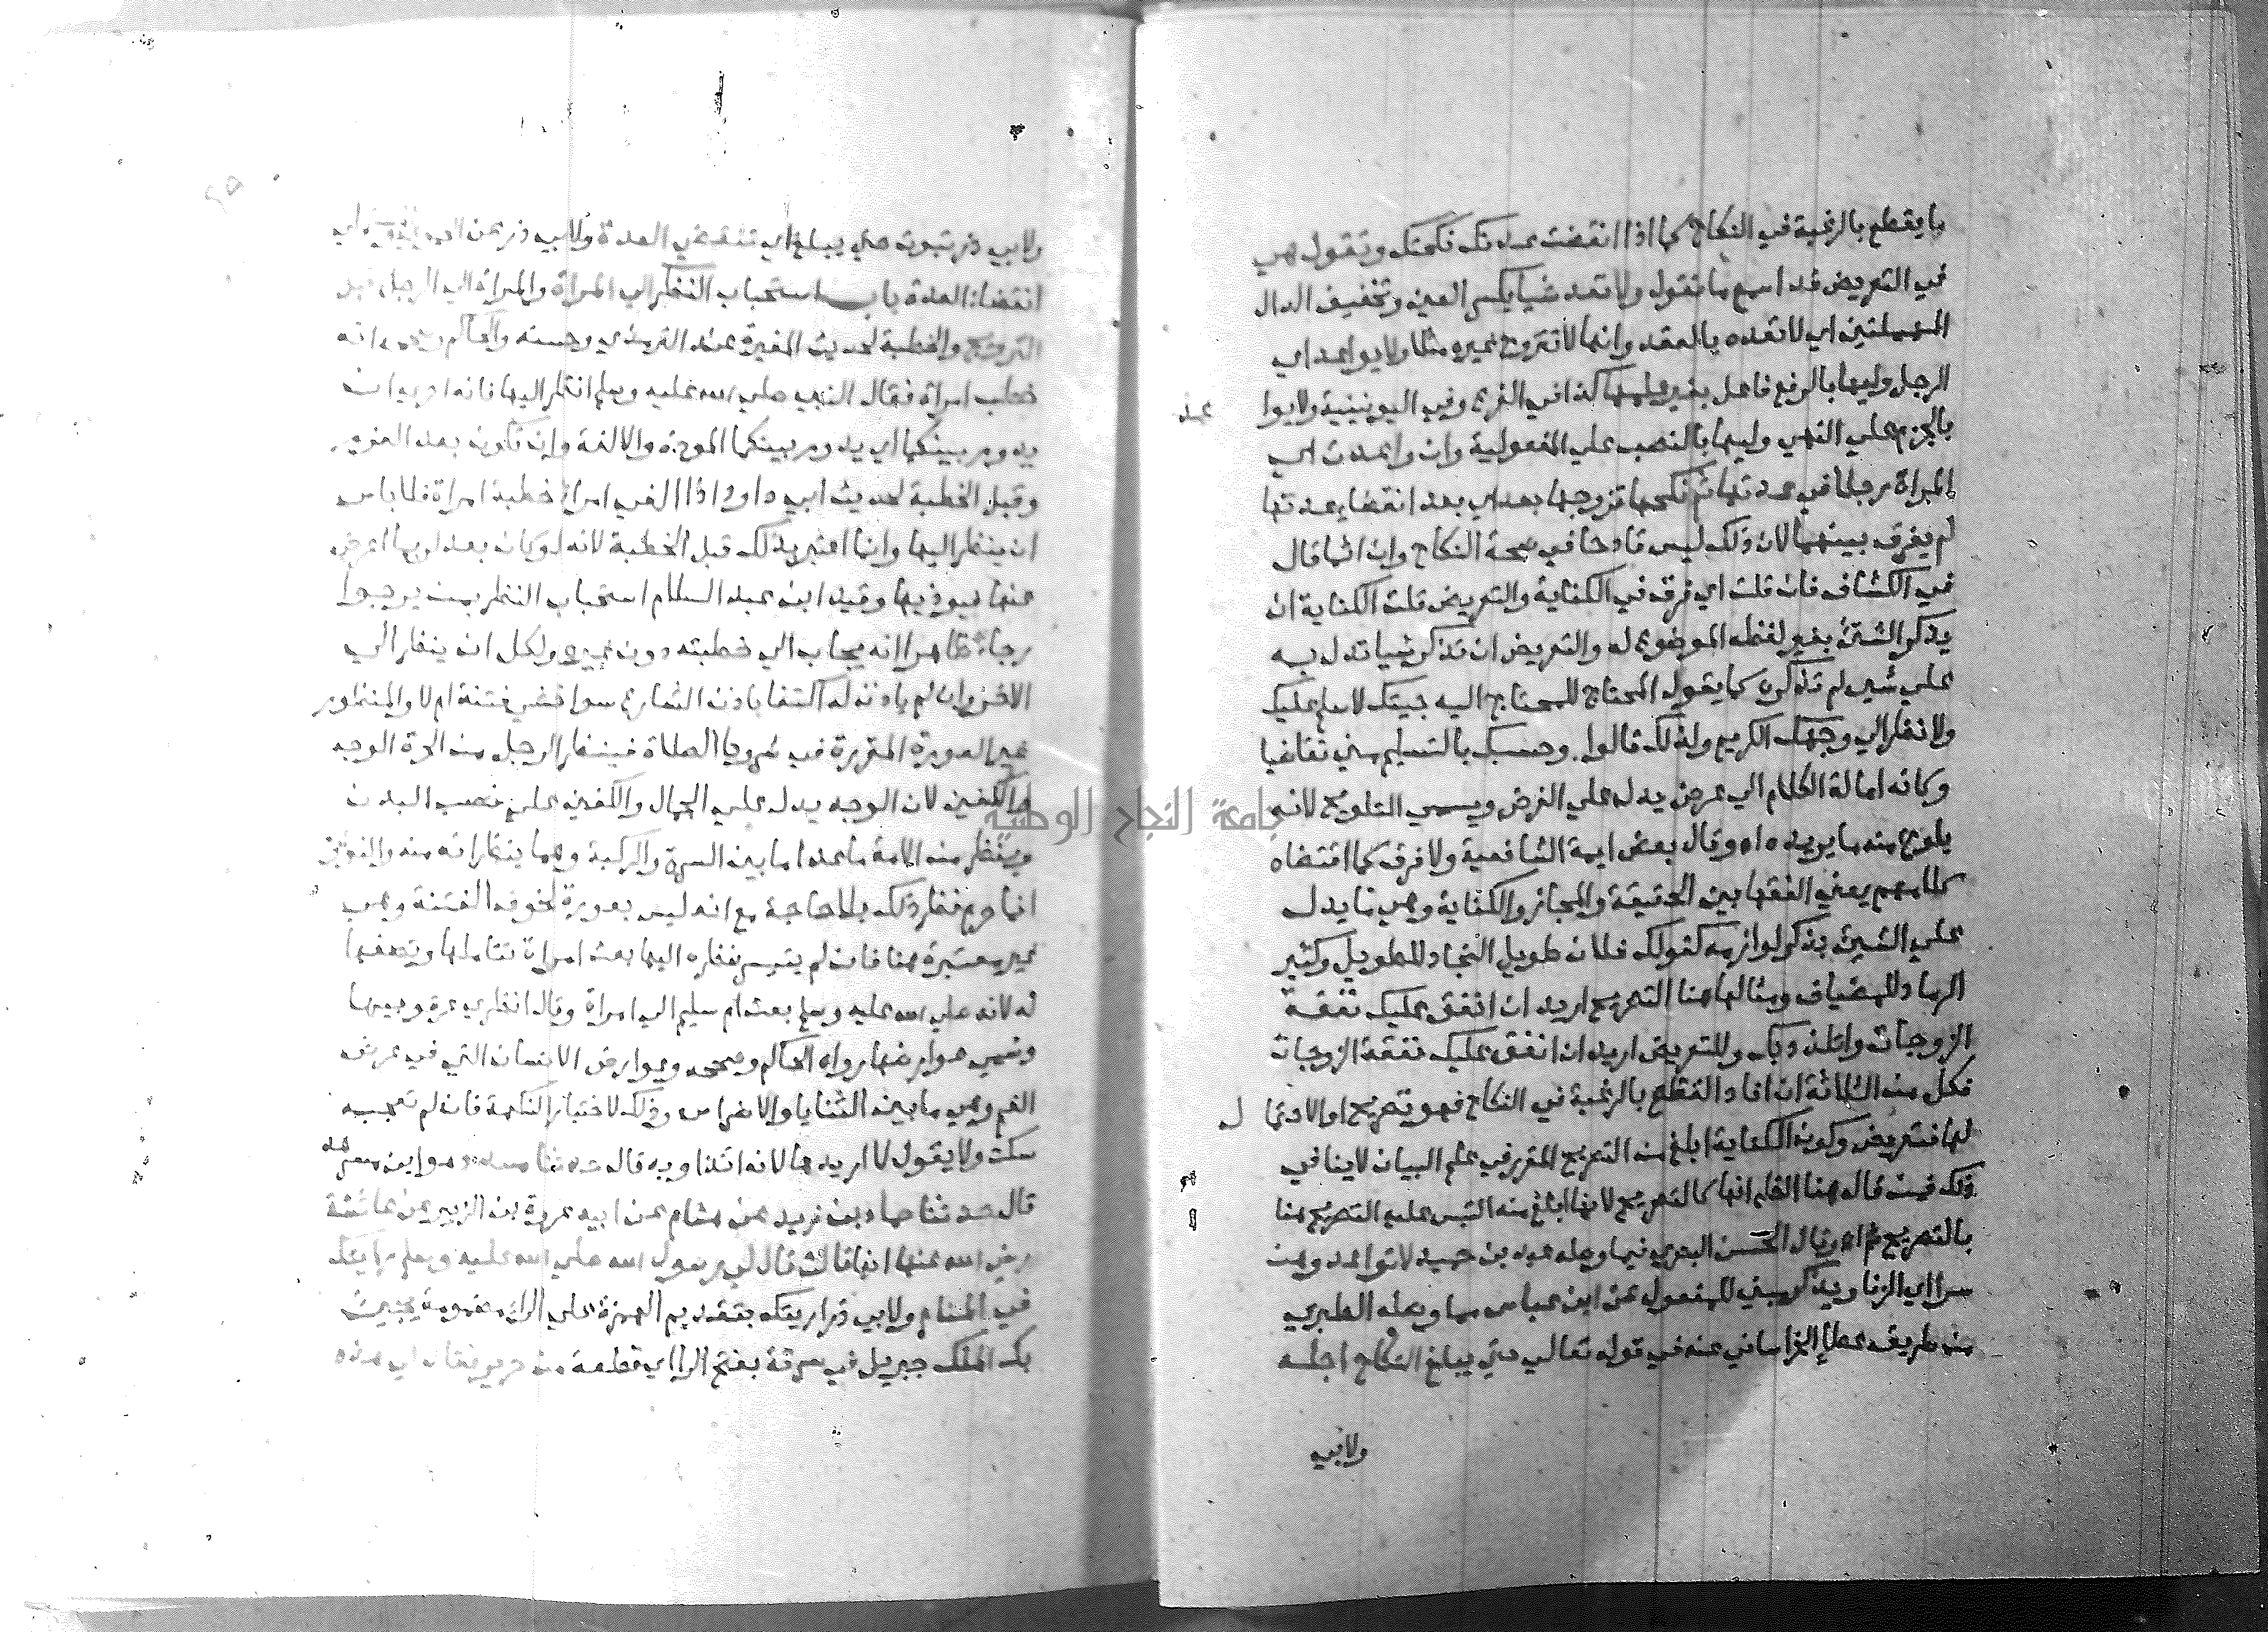 ما يقطع بالرغبة في النكاح كما اذا انقضت عدتك نكحتك وتقول هي
في التعريض قد اسمع ما تقول ولا تعد شيا بكسر العين وتخفيف الدال
المهملتين اي لا تعده بالعقد وانها لا تتزوج غيره مثلا ولا يواعد اي
الرجل وليها بالرفع فاعل بغير علمها كذا في الفرع وفي اليونينية ولا يوا
عد
بالجزم علي النهي وليها بالنصب علي المفعولية وان واعدت اي
المراة رجلا في عدتها ثم نكحها تزوجها بعد اي بعد انقضا عدتها
لم يفرق بينهما لان ذلك ليس قادحا في صحة النكاح وان اثما قال
في الكشاف فان قلت اي فرق في الكناية والتعريض قلت الكناية ان
يذكر الشئ بغير لفظه الموضوع له والتعريض ان تذكر شيا تدل به
علي شي لم تذكره كما يقول المحتاج للمحتاج اليه جيتك لاسلم عليك
ولا نظر الي وجهك الكريم ولذلك قالوا وحسبك بالتسليم مني تقاضيا
وكانه امالة الكلام الي عرض يدل علي الغرض ويسمي التلويح لانه
يلوح منه ما يريده اه وقال بعض ايمة الشافعية ولا فرق كما اقتضاه
كلامهم يعني الفقها بين الحقيقة والمجاز والكناية وهي ما يدل
علي الشي بذكر لوازمه كقولك فلان طويل النجاد للطويل وكثير
الرماد للمضياف ومثالها هنا التصريح اريد ان انفق عليك نفقة
الزوجات واتلذذ بك وللتعريض اريد ان انفق عليك نفقة الزوجات
فكل من الثلاثة ان افاد القطع بالرغبة في النكاح فهو تصريح او الاحتما
ل
لها فتعريض وكون الكناية ابلغ من التصريح المقرر في علم البيان لا ينافي
ذلك فمن قال هنا الظاهر انها كالتصريح لانها ابلغ منه التبس عليه التصريح هنا
بالتصريح ثم اه وقال الحسن البصري فيما وصله عبد بن حميد لا تواعدوهن
سرا اي الزنا ويذكر مبني للمفعول عن ابن عباس مما وصله الطبري
من طريق عطا الخراساني عنه في قوله تعالي حتي يبلغ الكتاب اجله
ولابي
ولابي ذر ثبوت حتي يبلغ اي تنقضي العدة ولابي ذر عن
انقضا العدة باب استحباب النظر الي المراة والمراة الي الرجل قبل
التزويج والخطبة لحديث المغيرة عند الترمذي وحسنه والحاكم وصححه انه
خطب امراة فقال النبي صلي الله عليه وسلم انظر اليها فانه احري ان
يدوم بينكما اي يدوم بينكما المودة والالفة وان تكون بعد العزم
وقبل الخطبة لحديث ابي داود اذا القي امرا خطبة امراة فلا باس
ان ينظر اليها وانما اعتبر بذلك قبل الخطبة لانه لو كان بعد لربما اعرض
عنها فيوذيها وقيد ابن عبد السلام استحباب النظر بمن يرجوا
رجا ظاهرا انه يجاب الي خطبته دون غيره ولكل ان ينظر الي
الاخر وان لم ياذن له اكتفا باذن الشارع سوا خشي فتنة ام لا والمنظور
غير العورة المقررة في شروط الصلاة فينظر الرجل من الحرة الوجه
والكفين لان الوجه يدل علي الجمال والكفين علي خصب البدن
وينظر من الامة ما عدا ما بين السرة والركبة وهما ينظرانه منه والنووي
انما حرم نظر ذلك بلا حاجة مع انه ليس بعورة لخوف الفتنة وهي
غير معتبرة هنا فان لم يتيسر نظره اليها بعث امراة تتاملها وتصفها
له لانه صلي الله عليه وسلم بعث ام سليم الي امراة وقال انظري عرقوبيها
وشمي عوارضها رواه الحاكم وصححه وعوارض الاسنان التي في عرض
الفم وهي ما بين الثنايا والاضراس وذلك لاختبار النكهة فان لم تعجبه
سكت ولا يقول لا اريدها لانه ايذا وبه قال حدثنا مسدد هو ابن مسرهد
قال حدثنا حماد بن زيد عن هشام عن ابيه عروة بن الزبير عن عائشة
رضي الله عنها انها قالت قال لي رسول الله صلي الله عليه وسلم رايتك
في المنام ولابي ذر اريتك بتقديم الهمزة علي الرا مضمومة يجي
بك الملك جبريل في سرقة بفتح الرا اي قطعة من حرير فقال لي هذه